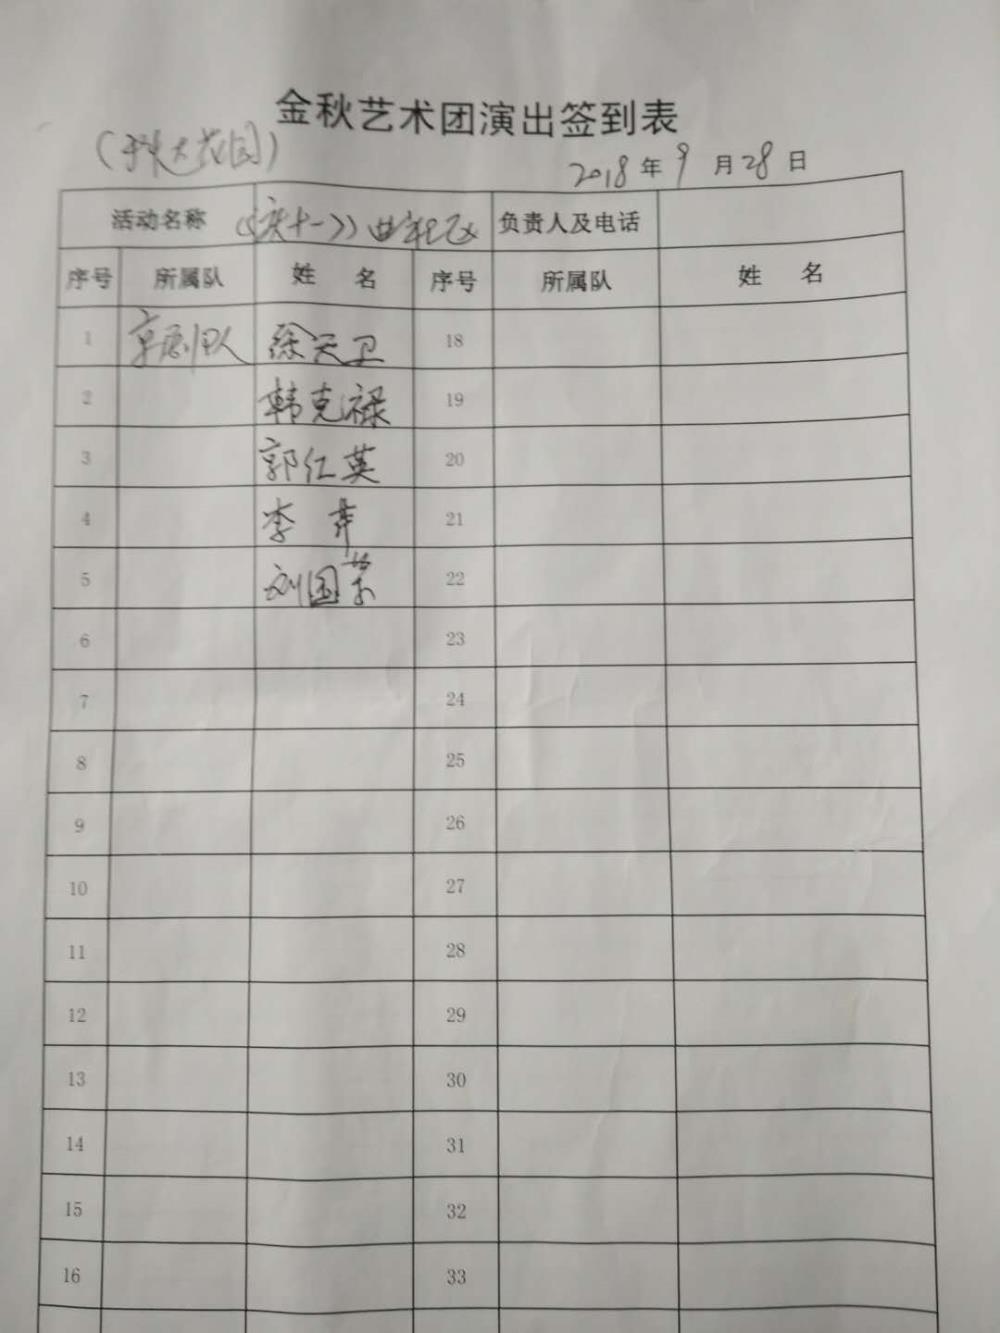 金秋艺术团演出签到表
2018年9月28日
活动名称 《庆十一》 负责人及电话
序号 所属队 姓 名 序号 所属队 姓 名
1 京剧队 徐天卫 18
2 韩克禄 19
3 郭仁英 20
4 李 21
5 刘国荣 22
6 23
7 24
8 25
9 26
10 27
11 28
12 29
13 30
14 31
15 32
16 33